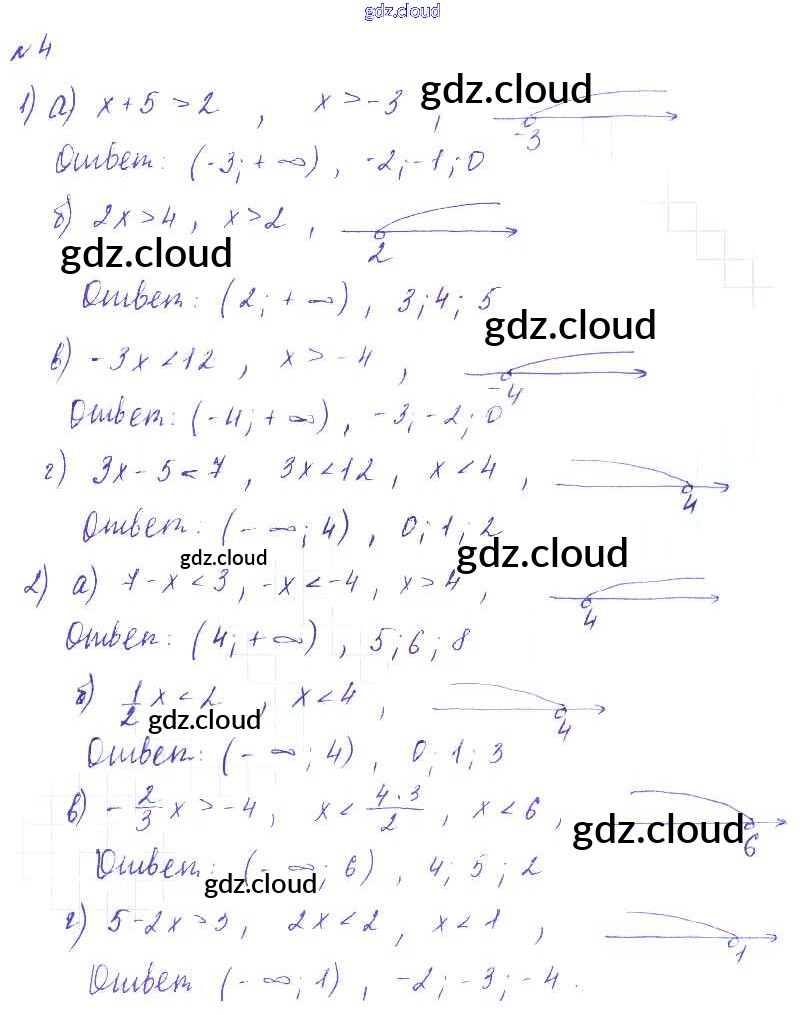 gdz.cloud
№4
1) а) x+5>2, x>-3, gdz.cloud -3
Ответ: (-3;+∞), -2;-1;0
б) 2x>4, x>2, 2
gdz.cloud
Ответ: (2;+∞), 3;4;5
gdz.cloud
в) -3x<12, x>-4, -4
Ответ: (-4;+∞), -3;-2;0
г) 3x-5<7, 3x<12, x<4, 4
Ответ: (-∞;4), 0;1;2
gdz.cloud gdz.cloud
2) а) 7-x<3, -x<-4, x>4, 4
Ответ: (4;+∞), 5;6;8
б) 1/2 x<2, x<4, 4
gdz.cloud
Ответ: (-∞;4), 0;1;3
в) -2/3 x>-4, x<4·3/2, x<6, 6
gdz.cloud
Ответ: (-∞;6), 4;5;2
gdz.cloud
г) 5-2x>3, 2x<2, x<1, 1
Ответ: (-∞;1), -2;-3;-4.